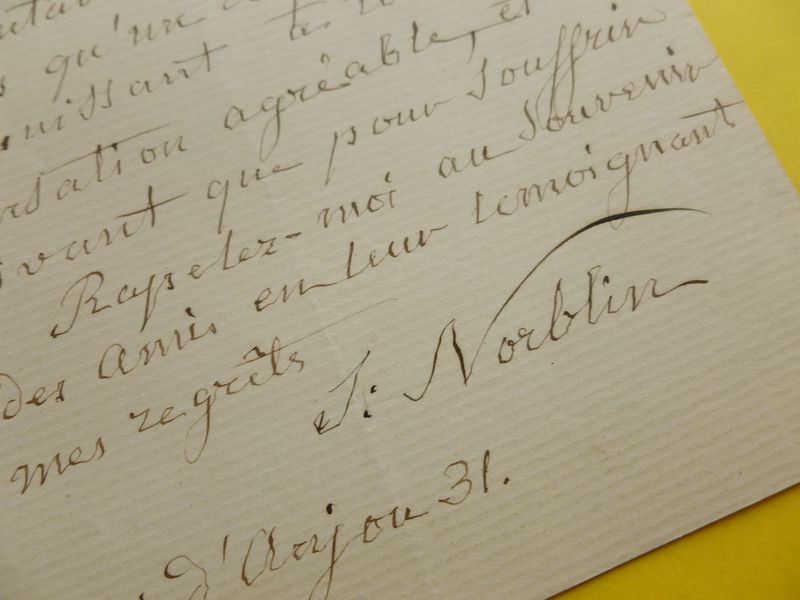 qu'un
uissant
rsation agréable, et
vant que pour souffrir
Rapelez-moi au souvenir
des amis en leur temoignant
mes regrêts
S: Norblin
d'Anjou 31.